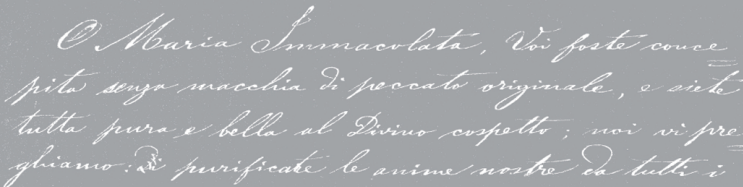 O Maria Immacolata, Voi foste conce=
pita senza macchia di peccato originale, e siete
tutta pura e bella al Divino cospetto; noi vi pre
ghiamo: Di purificate le anime nostre da tutti i